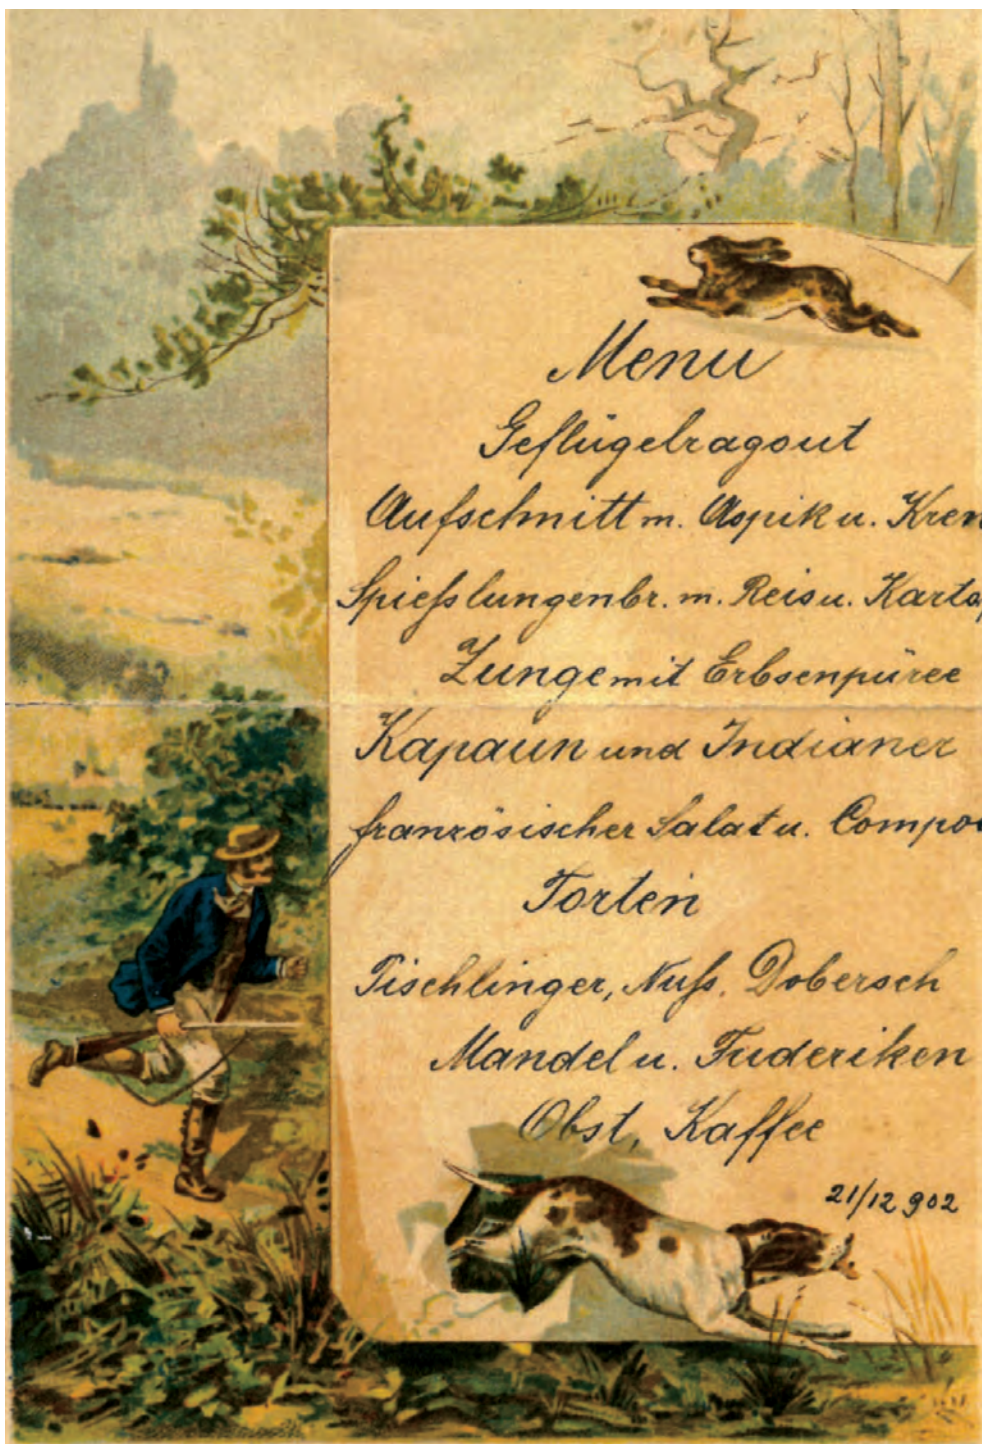 Menu
Geflügelragout
Aufschnitt m. Aspik u. Kren
Spießlungenbr. m. Reis u. Karto
Zunge mit Erbsenpüree
Kapaun und Indianer
französischer Salat u. Compo
Torten
Tischlinger, Nuß, Dobersch
Mandel u. Fuderiken
Obst, Kaffee
21/12 902